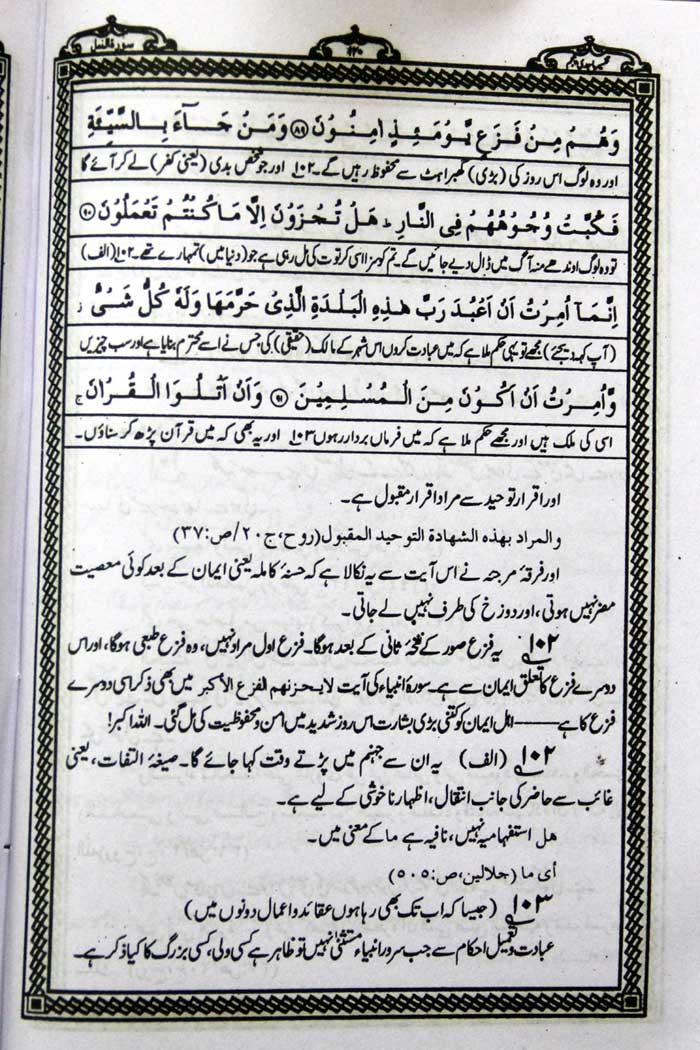 سورة النمل
وَهُمْ مِنْ فَزَعٍ يَّوْمَئِذٍ اٰمِنُوْنَ ۝۸۹ وَمَنْ جَآءَ بِالسَّيِّئَةِ
اور وہ لوگ اس روز کی (بڑی) گھبراہٹ سے محفوظ رہیں گے۔ ۱۰۲ اور جو شخص بدی (یعنی کفر) لے کر آئے گا
فَكُبَّتْ وُجُوْهُهُمْ فِى النَّارِ ؕ هَلْ تُجْزَوْنَ اِلَّا مَا كُنْتُمْ تَعْمَلُوْنَ ۝۹۰
تو وہ لوگ اوندھے منہ آگ میں ڈال دیے جائیں گے۔ تم کو سزا اسی کرتوت کی مل رہی ہے جو (دنیا میں) تمہارے تھے۔ ۱۰۲ (الف)
اِنَّمَاۤ اُمِرْتُ اَنْ اَعْبُدَ رَبَّ هٰذِهِ الْبَلْدَةِ الَّذِىْ حَرَّمَهَا وَلَهٗ كُلُّ شَىْءٍ ز
(آپ کہہ دیجئے) مجھے تو یہی حکم ملا ہے کہ میں عبادت کروں اس شہر کے مالک (حقیقی) کی جس نے اسے محترم بنایا ہے اور سب چیزیں
وَّاُمِرْتُ اَنْ اَكُوْنَ مِنَ الْمُسْلِمِيْنَ ۝۹۱ وَاَنْ اَتْلُوَا الْقُرْاٰنَ ج
اسی کی ملک ہیں اور مجھے حکم ملا ہے کہ میں فرماں بردار رہوں ۱۰۳ اور یہ بھی کہ میں قرآن پڑھ کر سناؤں۔
اور اقرار توحید سے مراد اقرار مقبول ہے۔
والمراد بهذه الشهادة التوحيد المقبول (روح، ج ۲۰/ص:۳۷)
اور فرقہ مرجئہ نے اس آیت سے یہ نکالا ہے کہ حسنۂ کاملہ یعنی ایمان کے بعد کوئی معصیت
مضر نہیں ہوتی، اور دوزخ کی طرف نہیں لے جاتی۔
۱۰۲ یہ فزع صور کے نفخۂ ثانی کے بعد ہوگا۔ فزع اول مراد نہیں، وہ فزع طبعی ہوگا، اور اس
دوسرے فزع کا تعلق ایمان سے ہے۔ سورۂ انبیاء کی آیت لا يحزنهم الفزع الأكبر میں بھی ذکر اسی دوسرے
فزع کا ہے——اہل ایمان کو کتنی بڑی بشارت اس روز شدید میں امن و محفوظیت کی مل گئی۔ اللہ اکبر!
۱۰۲ (الف) یہ ان سے جہنم میں پڑتے وقت کہا جائے گا۔ صیغۂ التفات، یعنی
غائب سے حاضر کی جانب انتقال، اظہار ناخوشی کے لیے ہے۔
هل استفہامیہ نہیں، نافیہ ہے ما کے معنی میں۔
أى ما (جلالین، ص:۵۰۵)
۱۰۳ (جیسا کہ اب تک بھی رہا ہوں عقائد و اعمال دونوں میں)
عبادت و تعمیل احکام سے جب سرور انبیاء مستثنیٰ نہیں تو ظاہر ہے کسی ولی، کسی بزرگ کا کیا ذکر ہے۔